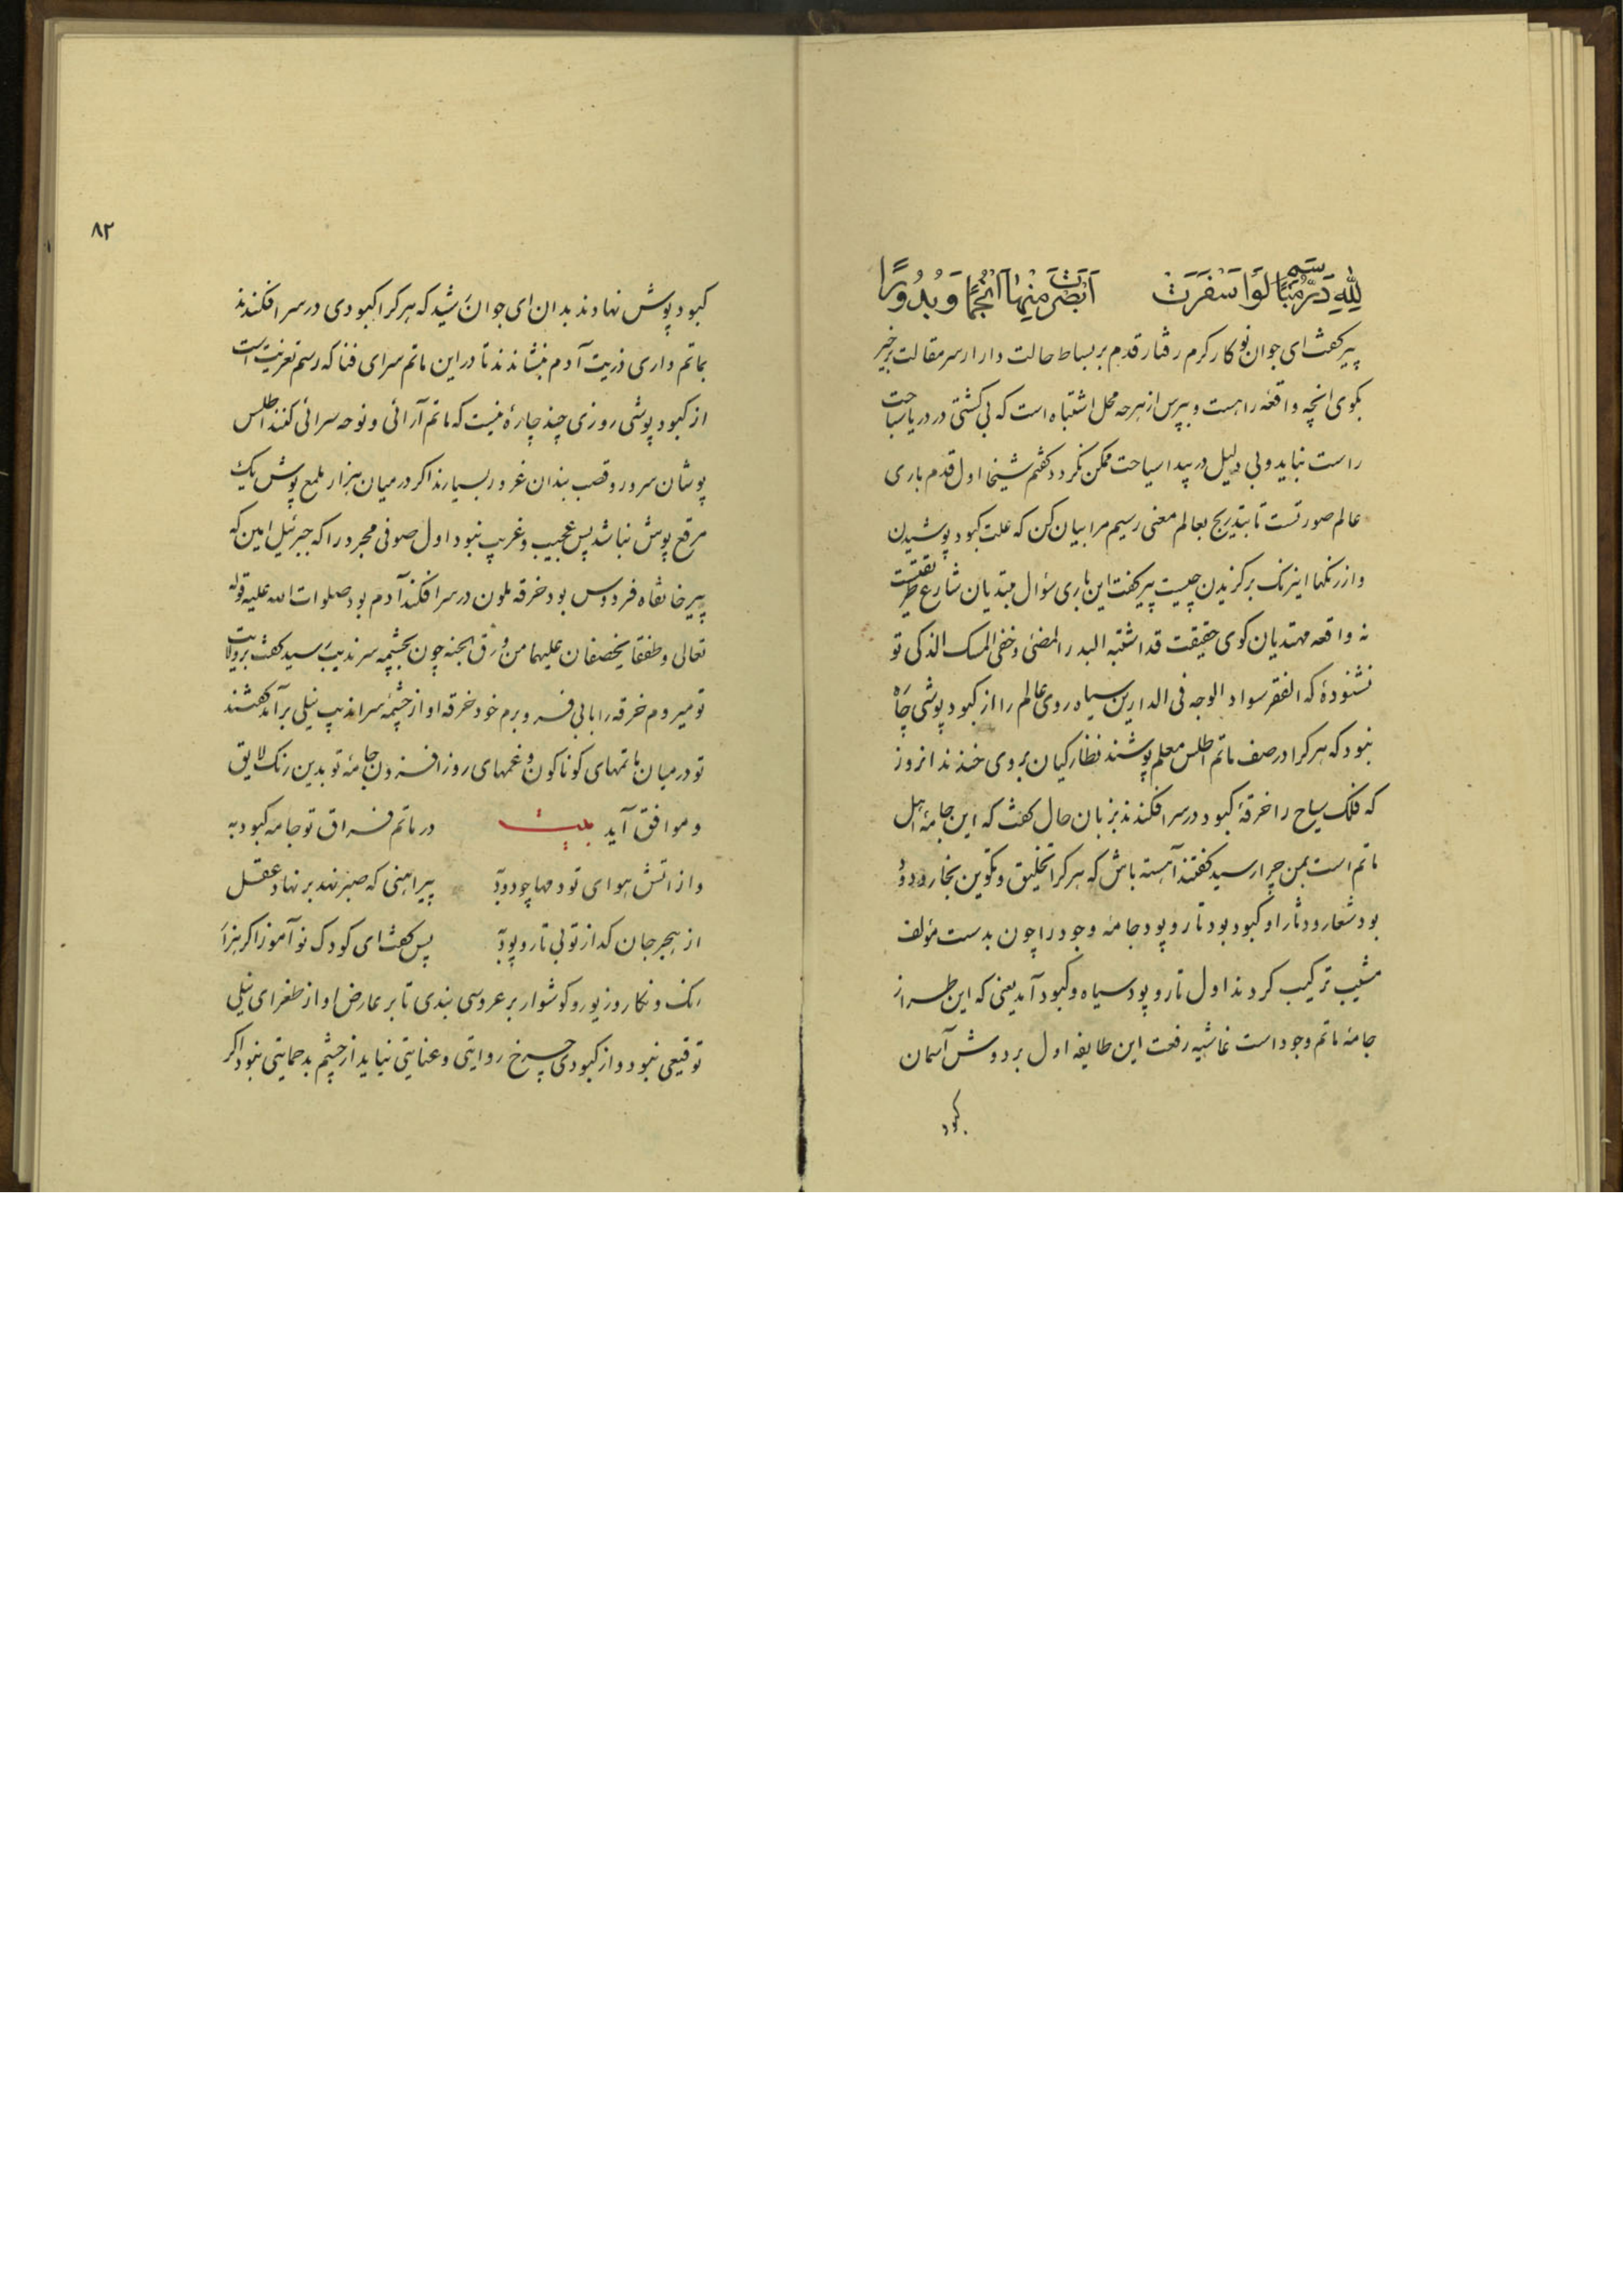 لِلّٰهِ دَرُّ مُتَبَسِّمٍ لَوْ اَسْفَرَتْ اَبْصَرْتَ مِنْهَا اَنْجُمًا وَبُدُورًا
پیر کفت ای جوان نوکار کرم رفتار قدم بر بساط حالت دار از سر مقالت برخیز
بکوی انچه واقعهٔ راهست و بپرس از هرچه محل اشتباه است که بی کشتی در دریا سباحت
راست نیاید و بی دلیل در بیدا سیاحت ممکن نکردد کفتم شیخا اول قدم باری
عالم صورتست تا بتدریج بعالم معنی رسیم مرا بیان کن که علت کبود پوشیدن
و از رنکها این رنک برکزیدن چیست پیر کفت این باری سؤال مبتدیان شارع طریقتست
نه واقعه مهتدیان کوی حقیقت قد اشتبه البدر المضئ و خفی المسک الذکی تو
نشنودهٔ که الفقر سواد الوجه فی الدارین سیاه روی عالم را از کبود پوشی چاه
نبود که هر کرا در صف ماتم اطلس معلم پوشند نظارکیان بر وی خندند انروز
که فلک سیاح را خرقهٔ کبود در سر افکندند بزبان حال کفت که این جامهٔ اهل
ماتم است بمن چرا رسید کفتند آهسته باش که هر کرا تخلیق و تکوین بخار و دود
بود شعار و دثار او کبود بود تار و پود جامه وجود را چون بدست مؤلف
مشیب ترکیب کردند اول تار و پود سیاه و کبود آمد یعنی که این طراز
جامهٔ ماتم وجود است غاشیه رفعت این طایفه اول بر دوش آسمان
کبود
۸۲
کبود پوش نهادند بدان ای جوان شید که هر کرا کبودی در سر افکندند
بماتم داری ذریت آدم بنشاندند تا در این ماتم سرای فنا که رسم تعزیت است
از کبود پوشی روزی چند چارهٔ نیست که ماتم آرائی و نوحه سرائی کنند اطلس
پوشان سرور و قصب بندان غرور بسیارند اکر در میان هزار ملمع پوش یک
مرقع پوش نباشد پس عجیب و غریب نبود اول صوفی مجرد را که جبرئیل امین که
پیر خانقاه فردوس بود خرقه ملون در سر افکند آدم بود صلوات الله علیه قوله
تعالی و طفقا یخصفان علیهما من ورق الجنه چون بچشمه سرندیب رسید کفت بر ولایت
تو میروم خرقه را بابی فرو برم خود خرقه او از چشمهٔ سراندیب نیلی برآمد کفتند
تو در میان ماتمهای کوناکون و غمهای روز افزون جامهٔ تو بدین رنک لایق
و موافق آید بیت در ماتم فراق تو جامه کبود به
و از اتش هوای تو دمها چو دود به پیراهنی که صبر نهد بر نهاد عقل
از هجر جان کداز تو بی تار و پود به پس کفت ای کودک نو آموز اکر هزار
رنک و نکار و زیور و کوشوار بر عروسی بندی تا بر عارض او از طغرای نیلی
توقیعی نبود و از کبودی چرخ روایتی و عنایتی نیاید از چشم بد حمایتی نبود اکر